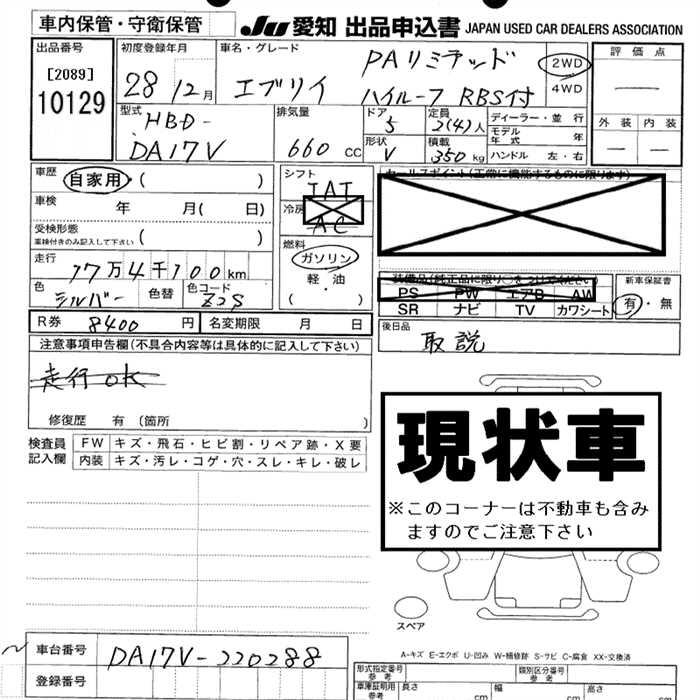 車内保管・守衛保管
JU 愛知 出品申込書 JAPAN USED CAR DEALERS ASSOCIATION
出品番号
[2089]
10129
初度登録年月
28 12月
車名・グレード
エブリイ
PAリミテッド
ハイルーフ RBS付
2WD
4WD
評価点
外装 内装
型式
HBD-
DA17V
排気量
660 cc
ドア
5
形状
V
定員
2(4)人
積載
350 kg
ディーラー・並行
モデル年式 年
ハンドル 左・右
車歴
自家用 ( )
車検 年 月( 日)
受検形態
車検付きのみ記入して下さい ( )
走行
17万4千100km
色
シルバー
色替
色コード
Z2S
シフト
IAT
冷房
AC
燃料
ガソリン
軽油
( ・ )
セールスポイント(正常に機能するものに限ります)
装備品(純正品に限り○をつけてください)
PS PW エアB AW
SR ナビ TV カワシート
新車保証書
有・無
R券 8400 円
名変期限 月 日
後日品
取説
注意事項申告欄(不具合内容等は具体的に記入して下さい)
走行OK
修復歴 有 (箇所 )
検査員記入欄
FW キズ・飛石・ヒビ割・リペア跡・X要
内装 キズ・汚レ・コゲ・穴・スレ・キレ・破レ
現状車
※このコーナーは不動車も含み
ますのでご注意下さい
スペア
A-キズ E-エクボ U-凹み W-補修跡 S-サビ C-腐食 XX-交換済
車台番号 DA17V-220288
登録番号
形式指定番号 参考
類別区分番号 参考
車庫証明用 参考
長さ cm
幅 cm
高さ cm